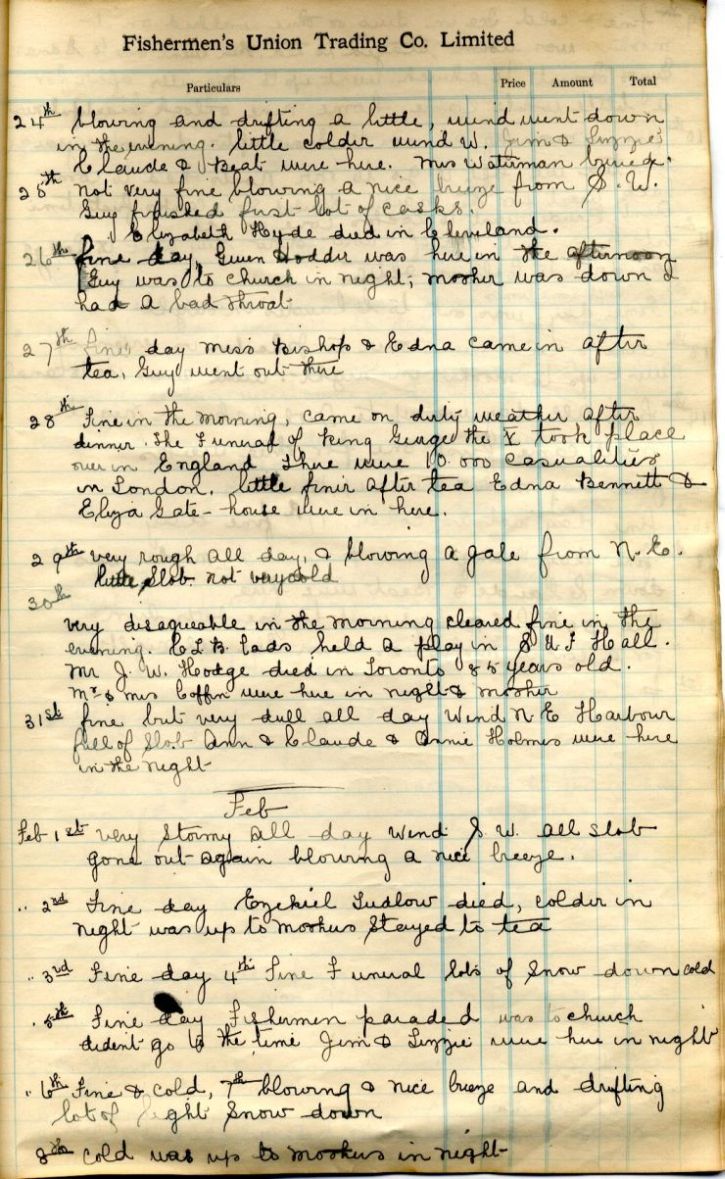 Fishermen's Union Trading Co. Limited
Particulars Price Amount Total
24th blowing and drifting a little, wind went down
in the evening. little colder wind W. Jim & Lizzie
Claude & Beat were here. Mrs Waterman
25th not very fine blowing a nice breeze from S.W.
Guy finished first lot of casks.
Elizabeth Hyde died in Cleveland.
26th fine day, Gwen Hodder was here in the afternoon
Guy was to church in night, mother was down I
had a bad throat
27th Fine day Miss Bishop & Edna came in after
tea, Guy went out there
28th Fine in the morning, came on dirty weather after
dinner. The Funeral of King George the V took place
over in England There were 10.000 casualities
in London. little finir after tea Edna Bennett &
Eliza Gate-house were in here.
29th very rough all day, & blowing a gale from N.E.
little slob. not very cold
30th
very disagueable in the morning cleared fine in the
evening. C L B. Lads held a play in S U F Hall.
Mr J. W. Hodge died in Toronto 85 years old.
Mr & Mrs Coffin were here in night & mother
31st fine but very dull all day Wind N E Harbour
full of Slob Ann & Claude & Annie Holmes were here
in the night
Feb
Feb 1st very Stormy all day Wind S W. all slob
gone out again blowing a nice breeze.
" 2nd Fine day Ezekiel Ludlow died, colder in
night was up to mothers stayed to tea
" 3rd Fine day 4th Fine Funeral lots of Snow down cold
" 5th Fine day Fishermen paraded was to church
dident go to the time Jim & Lizzie were here in night
" 6th Fine & cold, 7th blowing a nice breeze and drifting
lot of light Snow down
8th cold was up to mothers in night